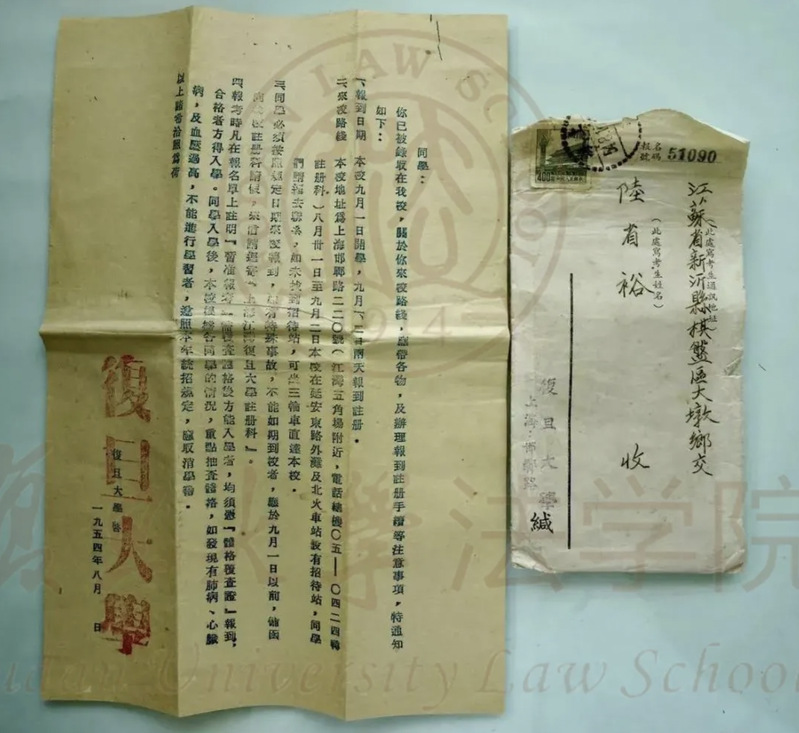 同學：
你已被錄取在我校，關於你來校路綫，應帶各物，及辦理報到註册手續等注意事項，特通知
如下：
一、報到日期 本校九月一日開學，九月一、二日兩天報到註册。
二、來校路綫 本校地址爲上海邯鄲路二二〇號（江灣五角場附近，電話總機〇五——〇四二四轉
註册科）八月卅一日至九月二日本校在延安東路外灘及北火車站設有招待站，同學
們請逕去聯絡，如未找到招待站，可坐三輪車直達本校。
三、同學必須按照規定日期來校報到，如有特殊事故，不能如期到校者，應於九月一日以前，備函
向本校註册科請假，來信請逕寄「上海江灣復旦大學註册科」。
四、報考時凡在報名單上註明「暫准報考 復查體格後方能入學」者，均須憑「體格復查證」報到，
合格者方得入學。同學入學後，本校 各同學的情況，重點抽查體格，如發現有肺病、心臟
病，及血壓過高，不能進行學習者，照本年統招規定，應取消學籍。
以上請查照爲荷
復旦大學啓
一九五四年八月 日
復旦大學
報名號碼 51090
江蘇省新沂縣棋盤區大墩鄉交
（此處寫考生通訊地址）
陸省裕 收
（此處寫考生姓名）
復旦大學 緘
上海邯鄲路
400
LAW SCHOOL
1914
大學法学院
Fudan University Law School